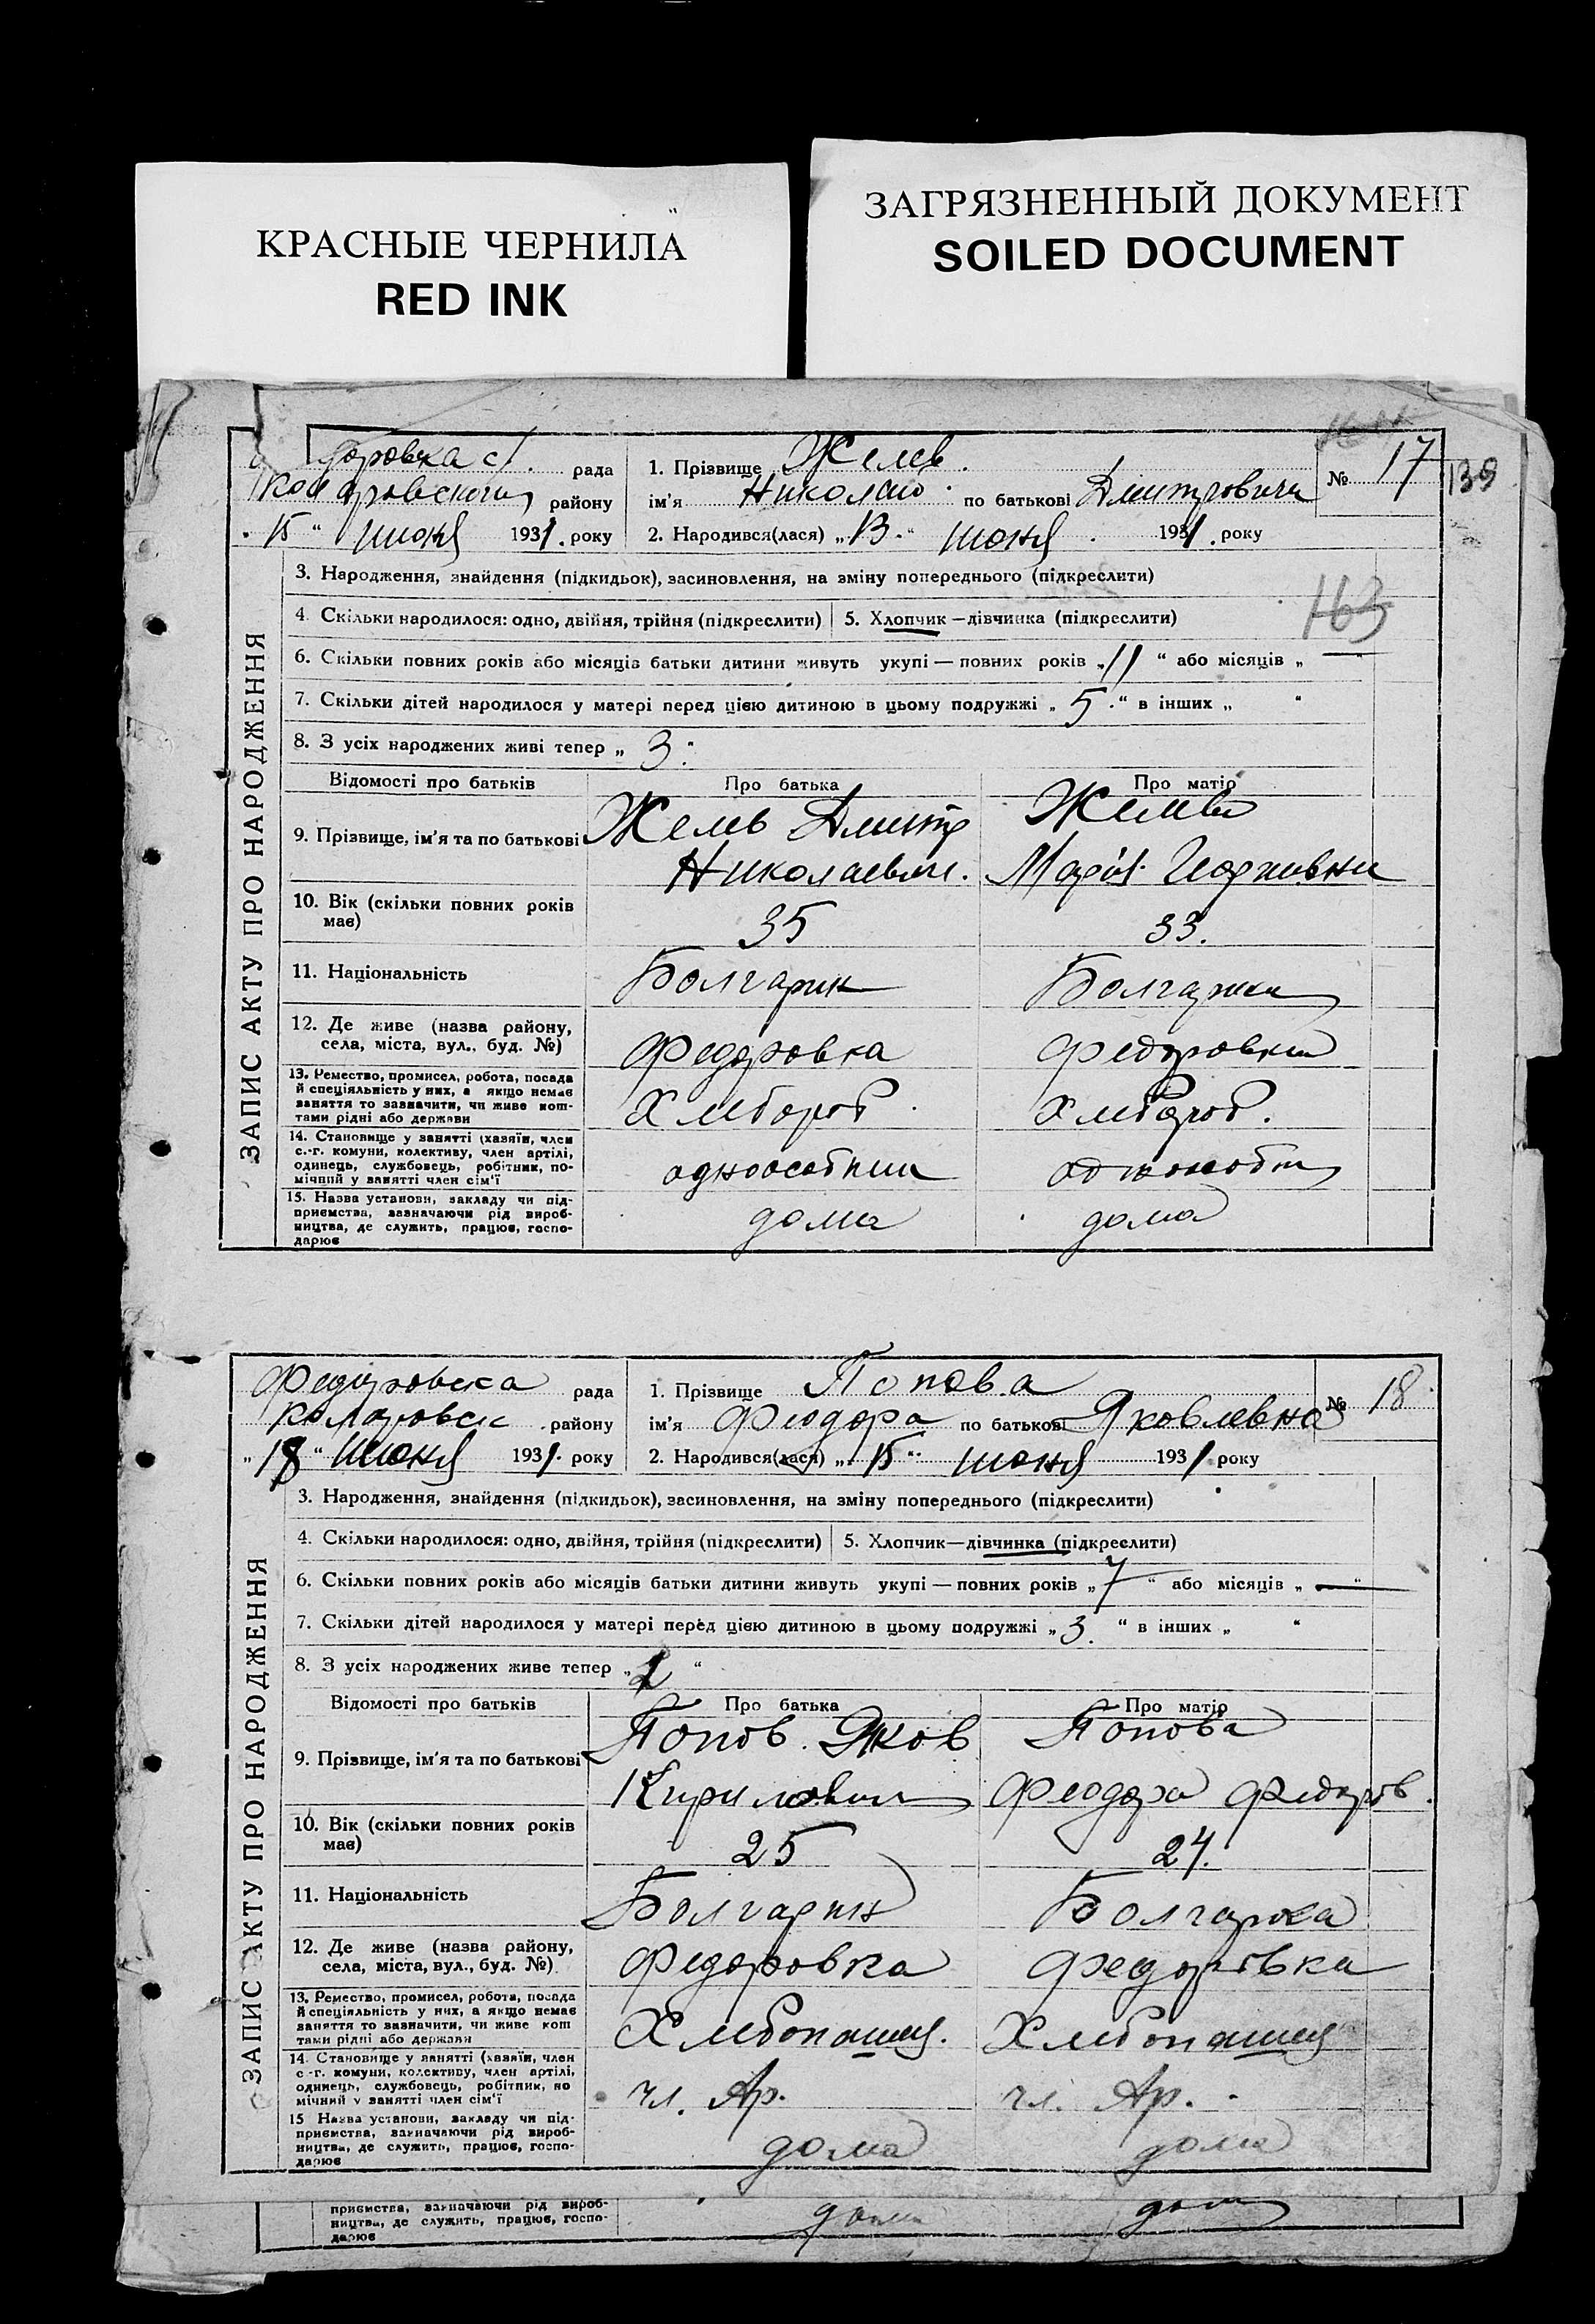 КРАСНЫЕ ЧЕРНИЛА
RED INK
ЗАГРЯЗНЕННЫЙ ДОКУМЕНТ
SOILED DOCUMENT
ЗАПИС АКТУ ПРО НАРОДЖЕННЯ
доровка с/. рада
району
„ 15 “ июня 1931. року
1. Прізвище Желев.
ім'я Николай по батькові Дмитрович
2. Народився(лася) „ 13. “ июня 1931. року
№ 17
139
163
3. Народження, знайдення (підкидьок), засиновлення, на зміну попереднього (підкреслити)
4. Скільки народилося: одно, двійня, трійня (підкреслити) 5. Хлопчик — дівчинка (підкреслити)
6. Скільки повних років або місяців батьки дитини живуть укупі — повних років „ 11 “ або місяців „ — “
7. Скільки дітей народилося у матері перед цією дитиною в цьому подружжі „ 5. “ в інших „ “
8. З усіх народжених живі тепер „ 3. “
Відомості про батьків Про батька Про матір
9. Прізвище, ім'я та по батькові Желев Дмитр
Николаевич. Мария
10. Вік (скільки повних років має) 35 33.
11. Національність Болгарин Болгарка
12. Де живе (назва району, села, міста, вул., буд. №) Федоровка Федоровка
13. Ремество, промисел, робота, посада й спеціяльність у них, а якщо немає заняття то зазначити, чи живе коштами рідні або держави Хлебороб Хлебороб.
14. Становище у занятті (хазяїн, член с.-г. комуни, колективу, член артілі, одинець, службовець, робітник, помічний у занятті член сім'ї
15. Назва установи, закладу чи підприємства, зазначаючи рід виробництва, де служить, працює, господарює дома дома
ЗАПИС АКТУ ПРО НАРОДЖЕННЯ
Федоровска рада
Комаровск району
„ 18 “ июня 1931. року
1. Прізвище Попова
ім'я Феодора по батькові Яковлевна
2. Народився(лася) „ 15 “ июня 1931 року
№ 18.
3. Народження, знайдення (підкидьок), засиновлення, на зміну попереднього (підкреслити)
4. Скільки народилося: одно, двійня, трійня (підкреслити) 5. Хлопчик—дівчинка (підкреслити)
6. Скільки повних років або місяців батьки дитини живуть укупі — повних років „ 7 “ або місяців „ — “
7. Скільки дітей народилося у матері перед цією дитиною в цьому подружжі „ 3. “ в інших „ “
8. З усіх народжених живе тепер „ “
Відомості про батьків Про батька Про матір
9. Прізвище, ім'я та по батькові Попов Яков Попова
Кирилович Феодора Федоров.
10. Вік (скільки повних років має) 25 24.
11. Національність Болгарин Болгарка
12. Де живе (назва району, села, міста, вул., буд. №) Федоровка Федоровка
13. Ремество, промисел, робота, посада й спеціяльність у них, а якщо немає заняття то зазначити, чи живе коштами рідні або держави Хлебопашец. Хлебопашец
14. Становище у занятті (хазяїн, член с.-г. комуни, колективу, член артілі, одинець, службовець, робітник, помічний у занятті член сім'ї чл. Ар. чл. Ар.
15. Назва установи, закладу чи підприємства, зазначаючи рід виробництва, де служить, працює, господарює дома дома
приємства, зазначаючи рід вироб-
ництва, де служить, працює, госпо- дома дома
дарює